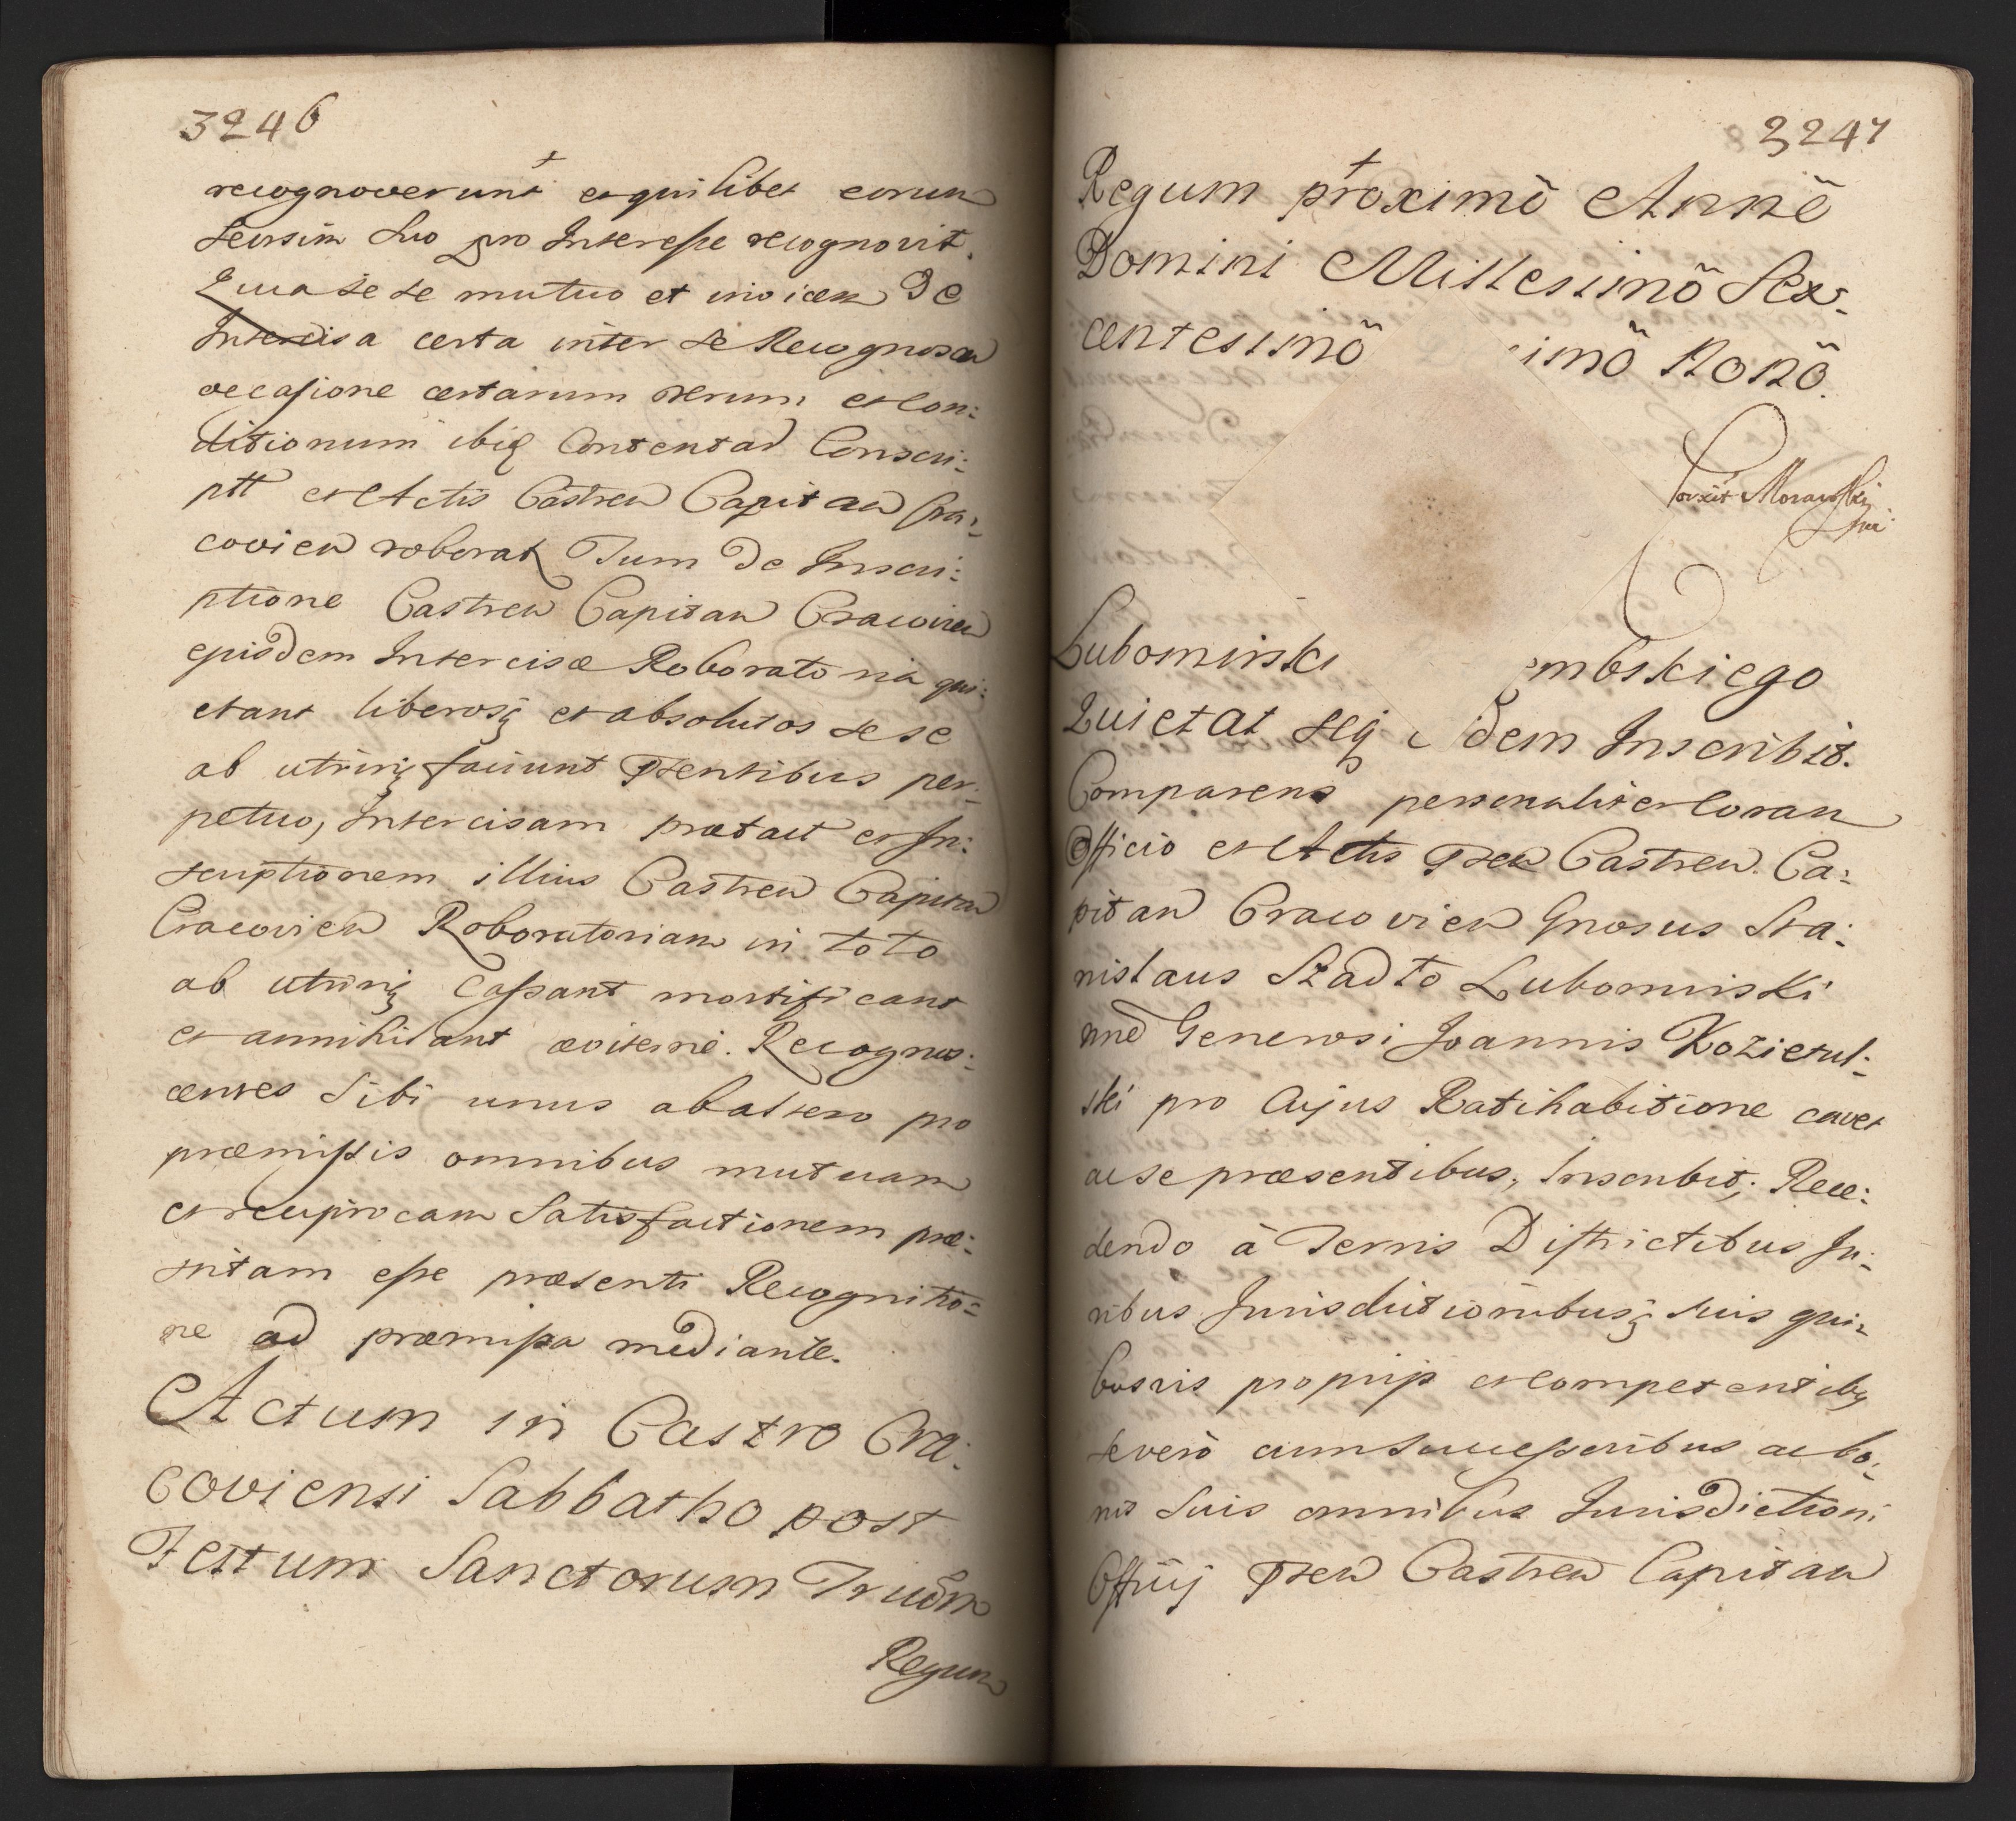 3246
recognoverunt et quilibet eorum
seorsim suo pro Interesse recognovit.
Quia sese mutuo et invicem de
Intercisa certa inter se Recognoscen
occasione certarum rerum et Con:
ditionum ibiq Content ac Conscri:
ptt et Actis Castren Capitan Cra:
covien roborat Tum de Inscri:
ptione Castren Capitan Cracovien
ejusdem Intercisæ Roboratoria qui:
etant liberosq et absolutos sese
ab utrinq faciunt Psentibus per:
petuo, Intercisam prætact et In:
scriptionem illius Castren Capitan
Cracovien Roboratoriam in toto
ab utrinq Cassant mortificant
et annihilant æviterne. Recognos:
centes Sibi unus ab altero pro
præmissis omnibus mutuam
et reciprocam Satisfactionem præ:
stitam esse præsenti Recognitio:
ne ad præmissa mediante.
Actum in Castro Cra:
coviensi Sabbatho post
Festum Sanctorum Trium
Regum
3247
Regum proximo Anno
Domini Millesimo Sex:
centesimo imo Nono.
Morawski
Lubominski embskiego
Quietat seq dem Inscribit.
Comparens personaliter Coram
Officio et Actis Psen Castren. Ca:
pitan Cracovien Gnosus Sta:
nislaus Szadto Lubominski
nne Generosi Joannis Kozietul:
ski pro cujus Ratihabitione cavet
ac se præsentibus, Inscribit; Rece:
dendo à Terris Districtibus Ju:
ribus Jurisdictionibusq suis qui:
busvis proprijs et Competentibq
se vero cum Successoribus ac bo:
nis Suis omnibus Jurisdictioni
Officij Psen Castren Capitan